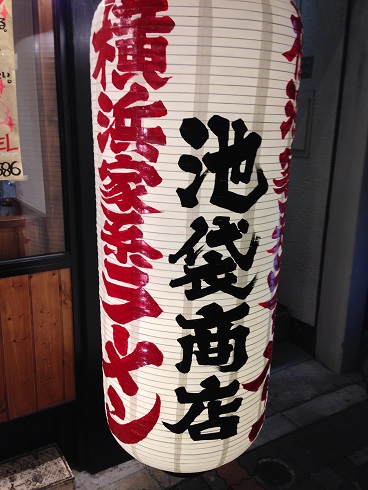 横浜家系ラーメン
池袋商店